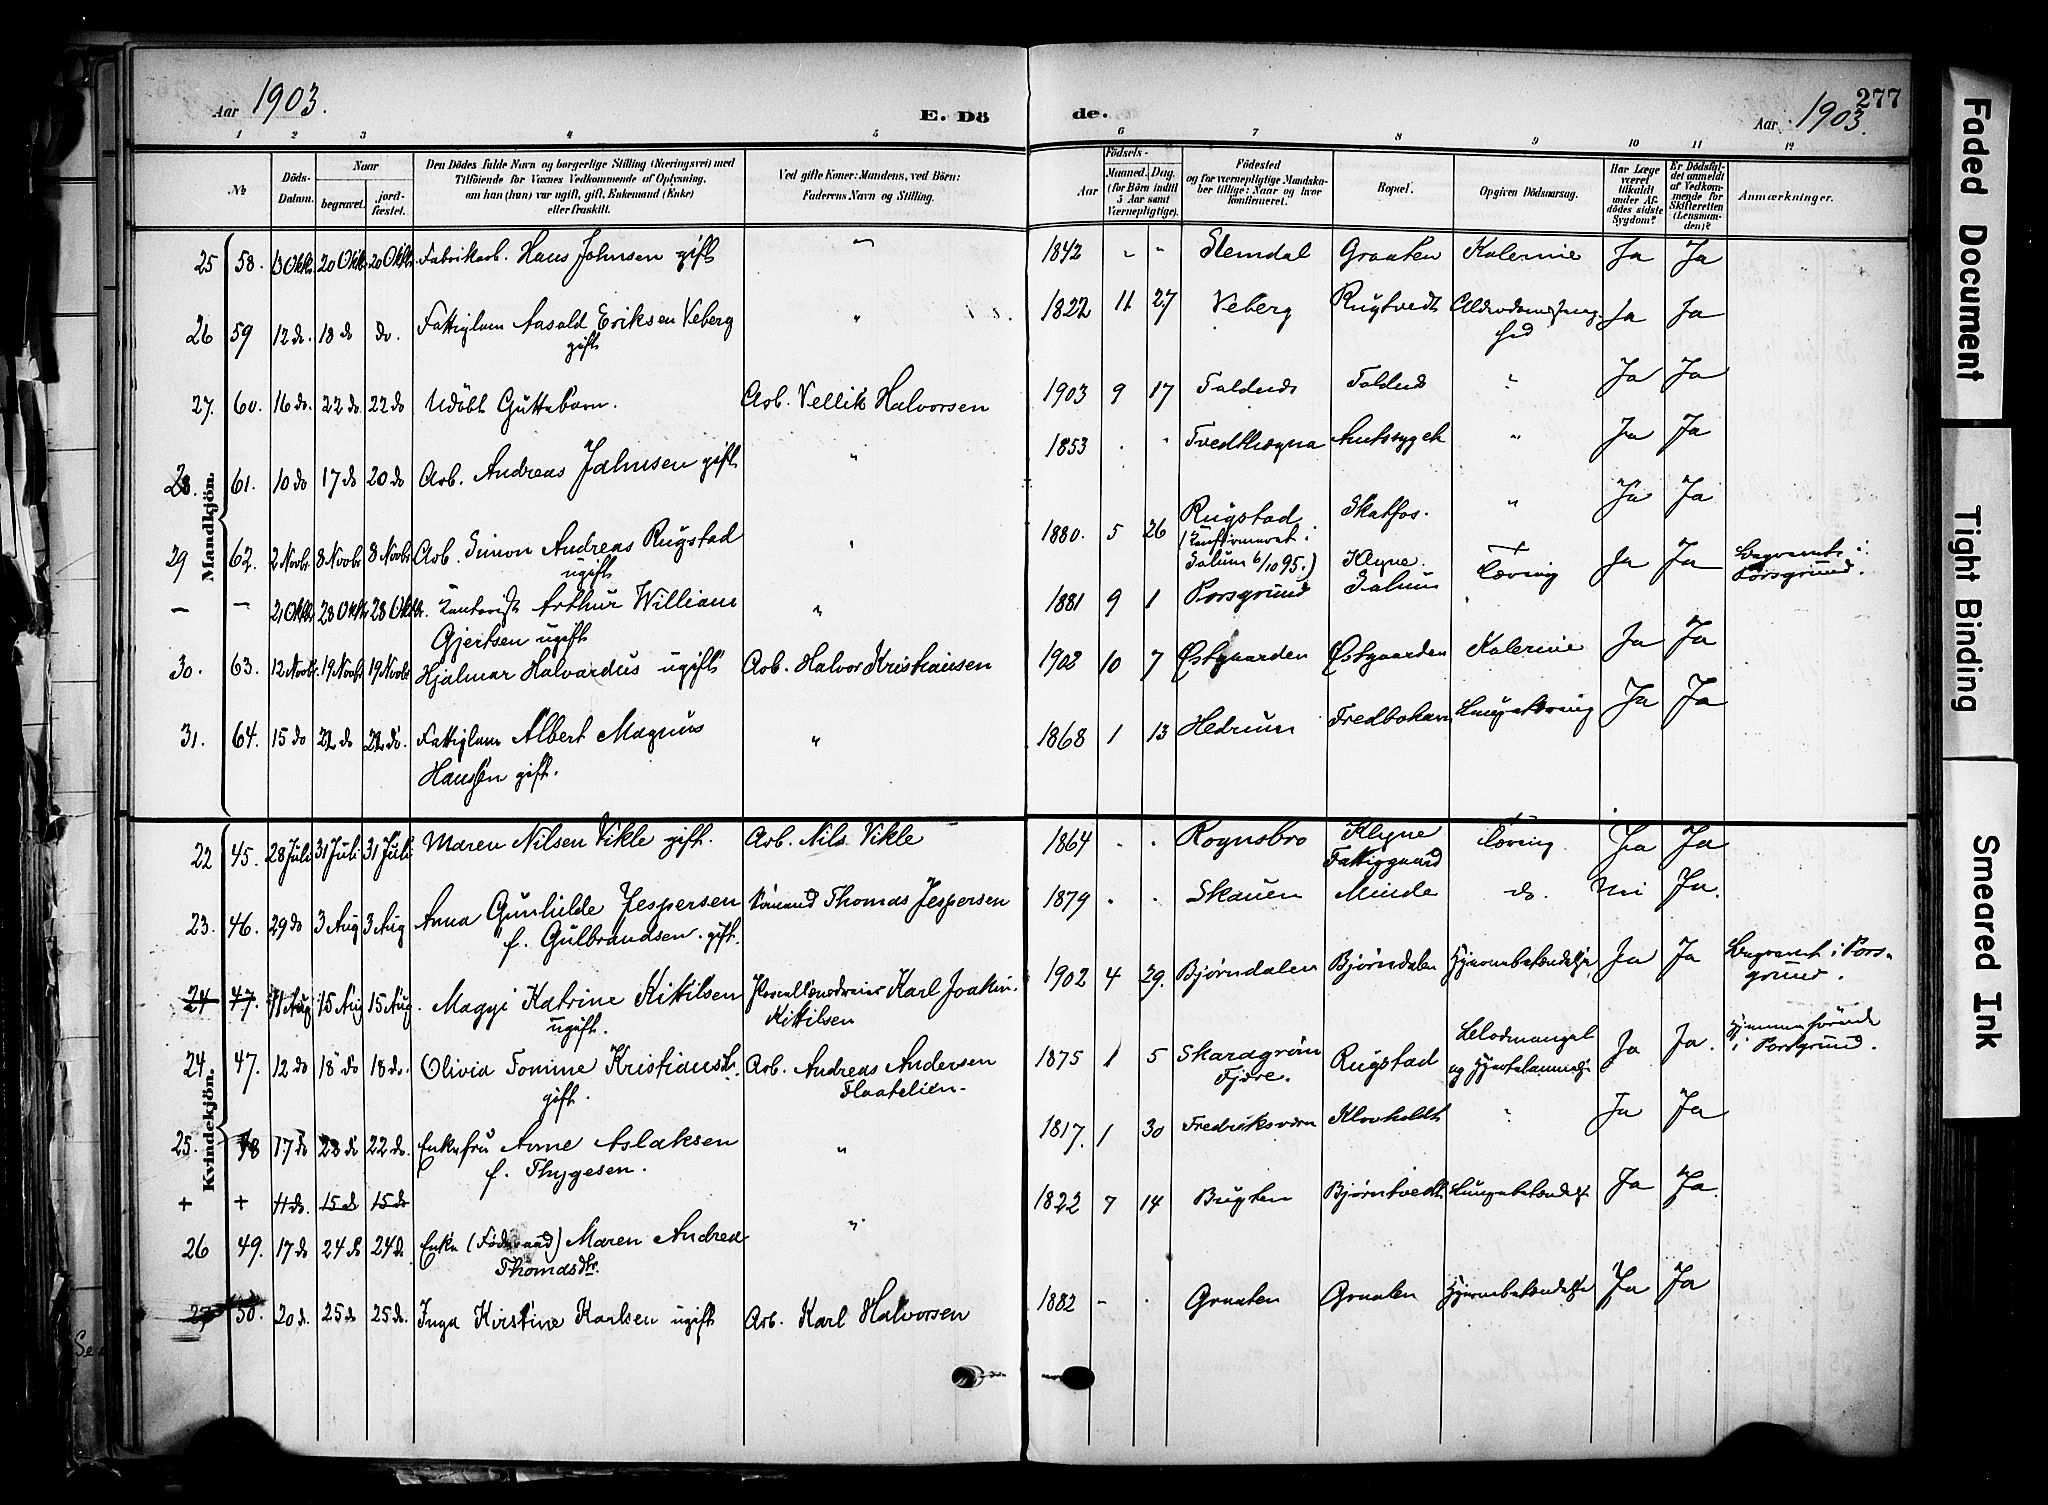 Aar 1903.
E. Dö
de.
277
Aar 1903.
1 2 3 4 5 6 7 8 9 10 11 12
No
Döds-
Datum.
Naar
begravet.
jord-
fæstet.
Den Dödes fulde Navn og borgerlige Stilling (Næringsvei) med
Tilföiende for Voxnes Vedkommende af Oplysning,
om han (hun) var ugift, gift, Enkemand (Enke)
eller fraskilt.
Ved gifte Koner: Mandens, ved Börn:
Faderens Navn og Stilling.
Aar
Födsels-
Maaned. Dag.
(for Börn indtil
5 Aar samt
Værnepligtige).
Födested
og for værnepligtige Mandska-
ber tillige: Naar og hvor
konfirmeret.
Bopæl.
Opgiven Dödsaarsag.
Har Læge
været
tilkaldt
under Af-
dödes sidste
Sygdom?
Er Dödsfal-
det anmeldt
af Vedkom-
mende for
Skifteretten
(Lensman-
den)?
Anmærkninger.
Mandkjön.
25 58. 13 Oktr. 20 Oktr. 20 Oktr. Fabrikarb. Hans Johnsen gift " 1842 " " Slemdal Graaten Kolerine Ja Ja
26 59 12 do. 18 do do. Fattiglem Aasold Eriksen Veberg
gift " 1822 11 27 Veberg Rugtvedt Ja Ja
27. 60. 16 do. 22 do. 22 do Udöbt Guttebarn. Arb. Vellik Halvorsen 1903 9 17 " Ja Ja
28. 61. 10 do 17 do 20 do Arb. Andreas Johnsen gift " 1853 . " Amtssygeh " Ja Ja
29 62. 2 Novbr. 8 Novbr 8 Novbr Arb. Simon Andreas Rugstad
ugift " 1880. 5 26 Rugstad
(Konfirmeret i
Solum 6/10 95.) Skotfos. " Ja Ja
— — 21 Oktr. 28 Oktr 28 Oktr. Kontorist Arthur William
Gjertsen ugift " 1881 9 1 Porsgrund Klyve.
Solum Tæring Ja Ja Begravet i
Porsgrund.
30. 63. 12 Novbr. 19 Novbr 19 Novbr Hjalmar Halvardus ugift Arb. Halvor Kristiansen 1902 10 7 Østgaarden Østgaarden Kolerine Ja Ja
31. 64. 15 do 22 do 22 do. Fattiglem Albert Magnus
Hanssen gift. " 1868 1 13 Hedrum Lungetæring Ja Ja
Kvindekjön.
22 45. 28 Juli 31 Juli 31 Juli Maren Nilsen Vikle gift. Arb. Nils Vikle 1864 . . Rognsbro Klyve
Fattiggaard Tæring Ja Ja
23. 46. 29 do 3 Aug 3 Aug Anna Gunhilde Jespersen
f. Gulbrandsen. gift. Sömand Thomas Jespersen 1879 . . Skauen Minde do. Nei Ja.
24 47. 11 Aug 15 Aug 15 Aug. Maggi Katrine Kittilsen
ugift. Porcellænsdreier Karl Joakim
Kittilsen 1902 4 29. Bjørndalen Bjørndalen Hjernebetændelse Ja Ja Begravet i Pors-
grund.
24. 47. 12 do 18 do 18 do. Olivia Tomine Kristiansdtr.
gift. Arb. Andreas Andersen
Flaatelien. 1875 1 5 Skaragrøn
Fjære. Rugstad Blodmangel
og Hjertelammelse Ja Ja. Hjemmeførende
i Porsgrund.
25. 48 17 do 22 do 22 do. Enkefru Anne Aslaksen
f. Thygesen. " 1817. 1 30 Fredriksværn Klovholdt " Ja Ja
+ + 11 do. 15 do 15 do
26 49. 17 do 24 do 24 do Enke (Föderaad) Maren Andrea
Thomasdtr. " 1822 7 14 Bugten Bjørntvedt Lungebetændelse Ja Ja.
27 50. 20 do. 25 do 25 do. Inga Kirstine Karlsen ugift Arb. Karl Halvorsen 1882 - . Graaten Graaten Hjernebetændelse Ja Ja
Faded Document
Tight Binding
Smeared Ink